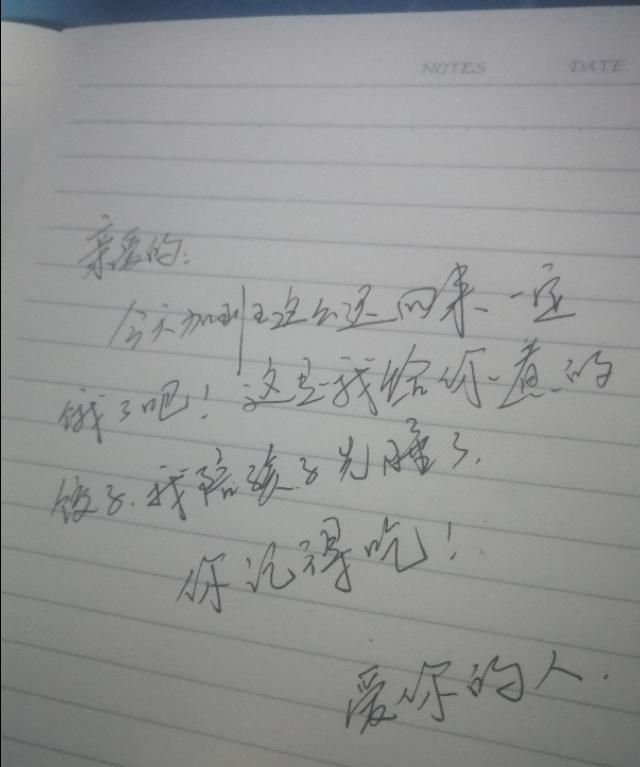 NOTES DATE
亲爱的:
今天加班这么还回来、一定
饿了吧!这是我给你煮的
饺子.我陪孩子先睡了.
你记得吃!
爱你的人.